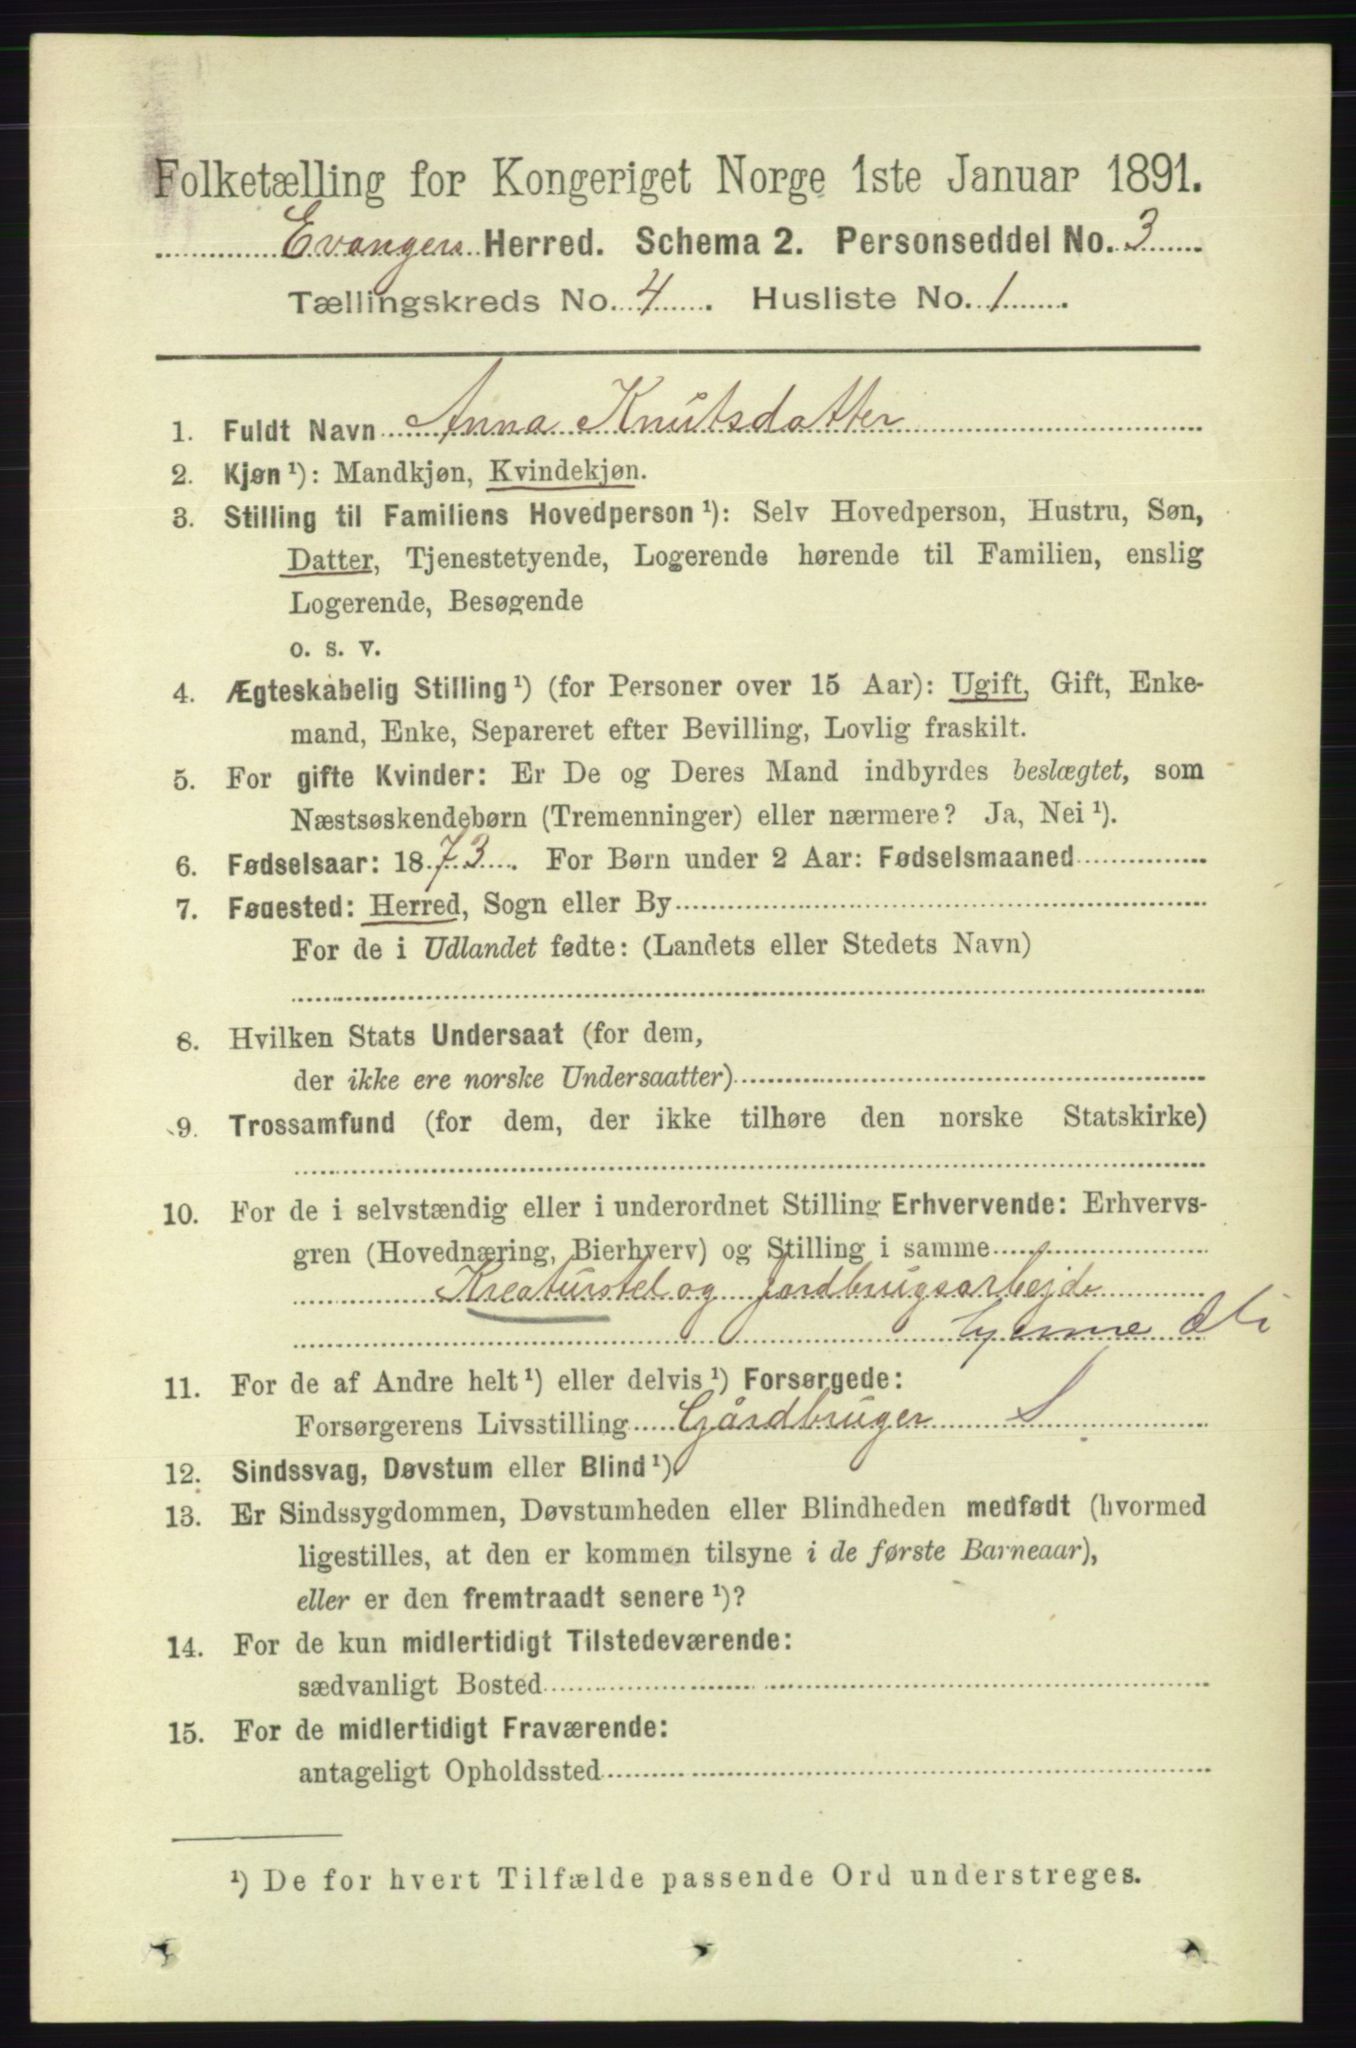 Folketælling for Kongeriget Norge 1ste Januar 1891.
Evangers Herred. Schema 2. Personseddel No. 3
Tællingskreds No. 4. Husliste No. 1.
1. Fuldt Navn Anna Knutsdatter
2. Kjøn ¹): Mandkjøn, Kvindekjøn.
3. Stilling til Familiens Hovedperson ¹): Selv Hovedperson, Hustru, Søn,
Datter, Tjenestetyende, Logerende hørende til Familien, enslig
Logerende, Besøgende
o. s. v.
4. Ægteskabelig Stilling ¹) (for Personer over 15 Aar): Ugift, Gift, Enke-
mand, Enke, Separeret efter Bevilling, Lovlig fraskilt.
5. For gifte Kvinder: Er De og Deres Mand indbyrdes beslægtet, som
Næstsøskendebørn (Tremenninger) eller nærmere? Ja, Nei ¹).
6. Fødselsaar: 1873. For Børn under 2 Aar: Fødselsmaaned
7. Fødested: Herred, Sogn eller By
For de i Udlandet fødte: (Landets eller Stedets Navn)
8. Hvilken Stats Undersaat (for dem,
der ikke ere norske Undersaatter)
9. Trossamfund (for dem, der ikke tilhøre den norske Statskirke)
10. For de i selvstændig eller i underordnet Stilling Erhvervende: Erhvervs-
gren (Hovednæring, Bierhverv) og Stilling i samme
Kreaturstel og Jordbrugsarbejde
hjemme
11. For de af Andre helt ¹) eller delvis ¹) Forsørgede:
Forsørgerens Livsstilling Gårdbruger S
12. Sindssvag, Døvstum eller Blind ¹).
13. Er Sindssygdommen, Døvstumheden eller Blindheden medfødt (hvormed
ligestilles, at den er kommen tilsyne i de første Barneaar),
eller er den fremtraadt senere ¹)?
14. For de kun midlertidigt Tilstedeværende:
sædvanligt Bosted
15. For de midlertidigt Fraværende:
antageligt Opholdssted
¹) De for hvert Tilfælde passende Ord understreges.